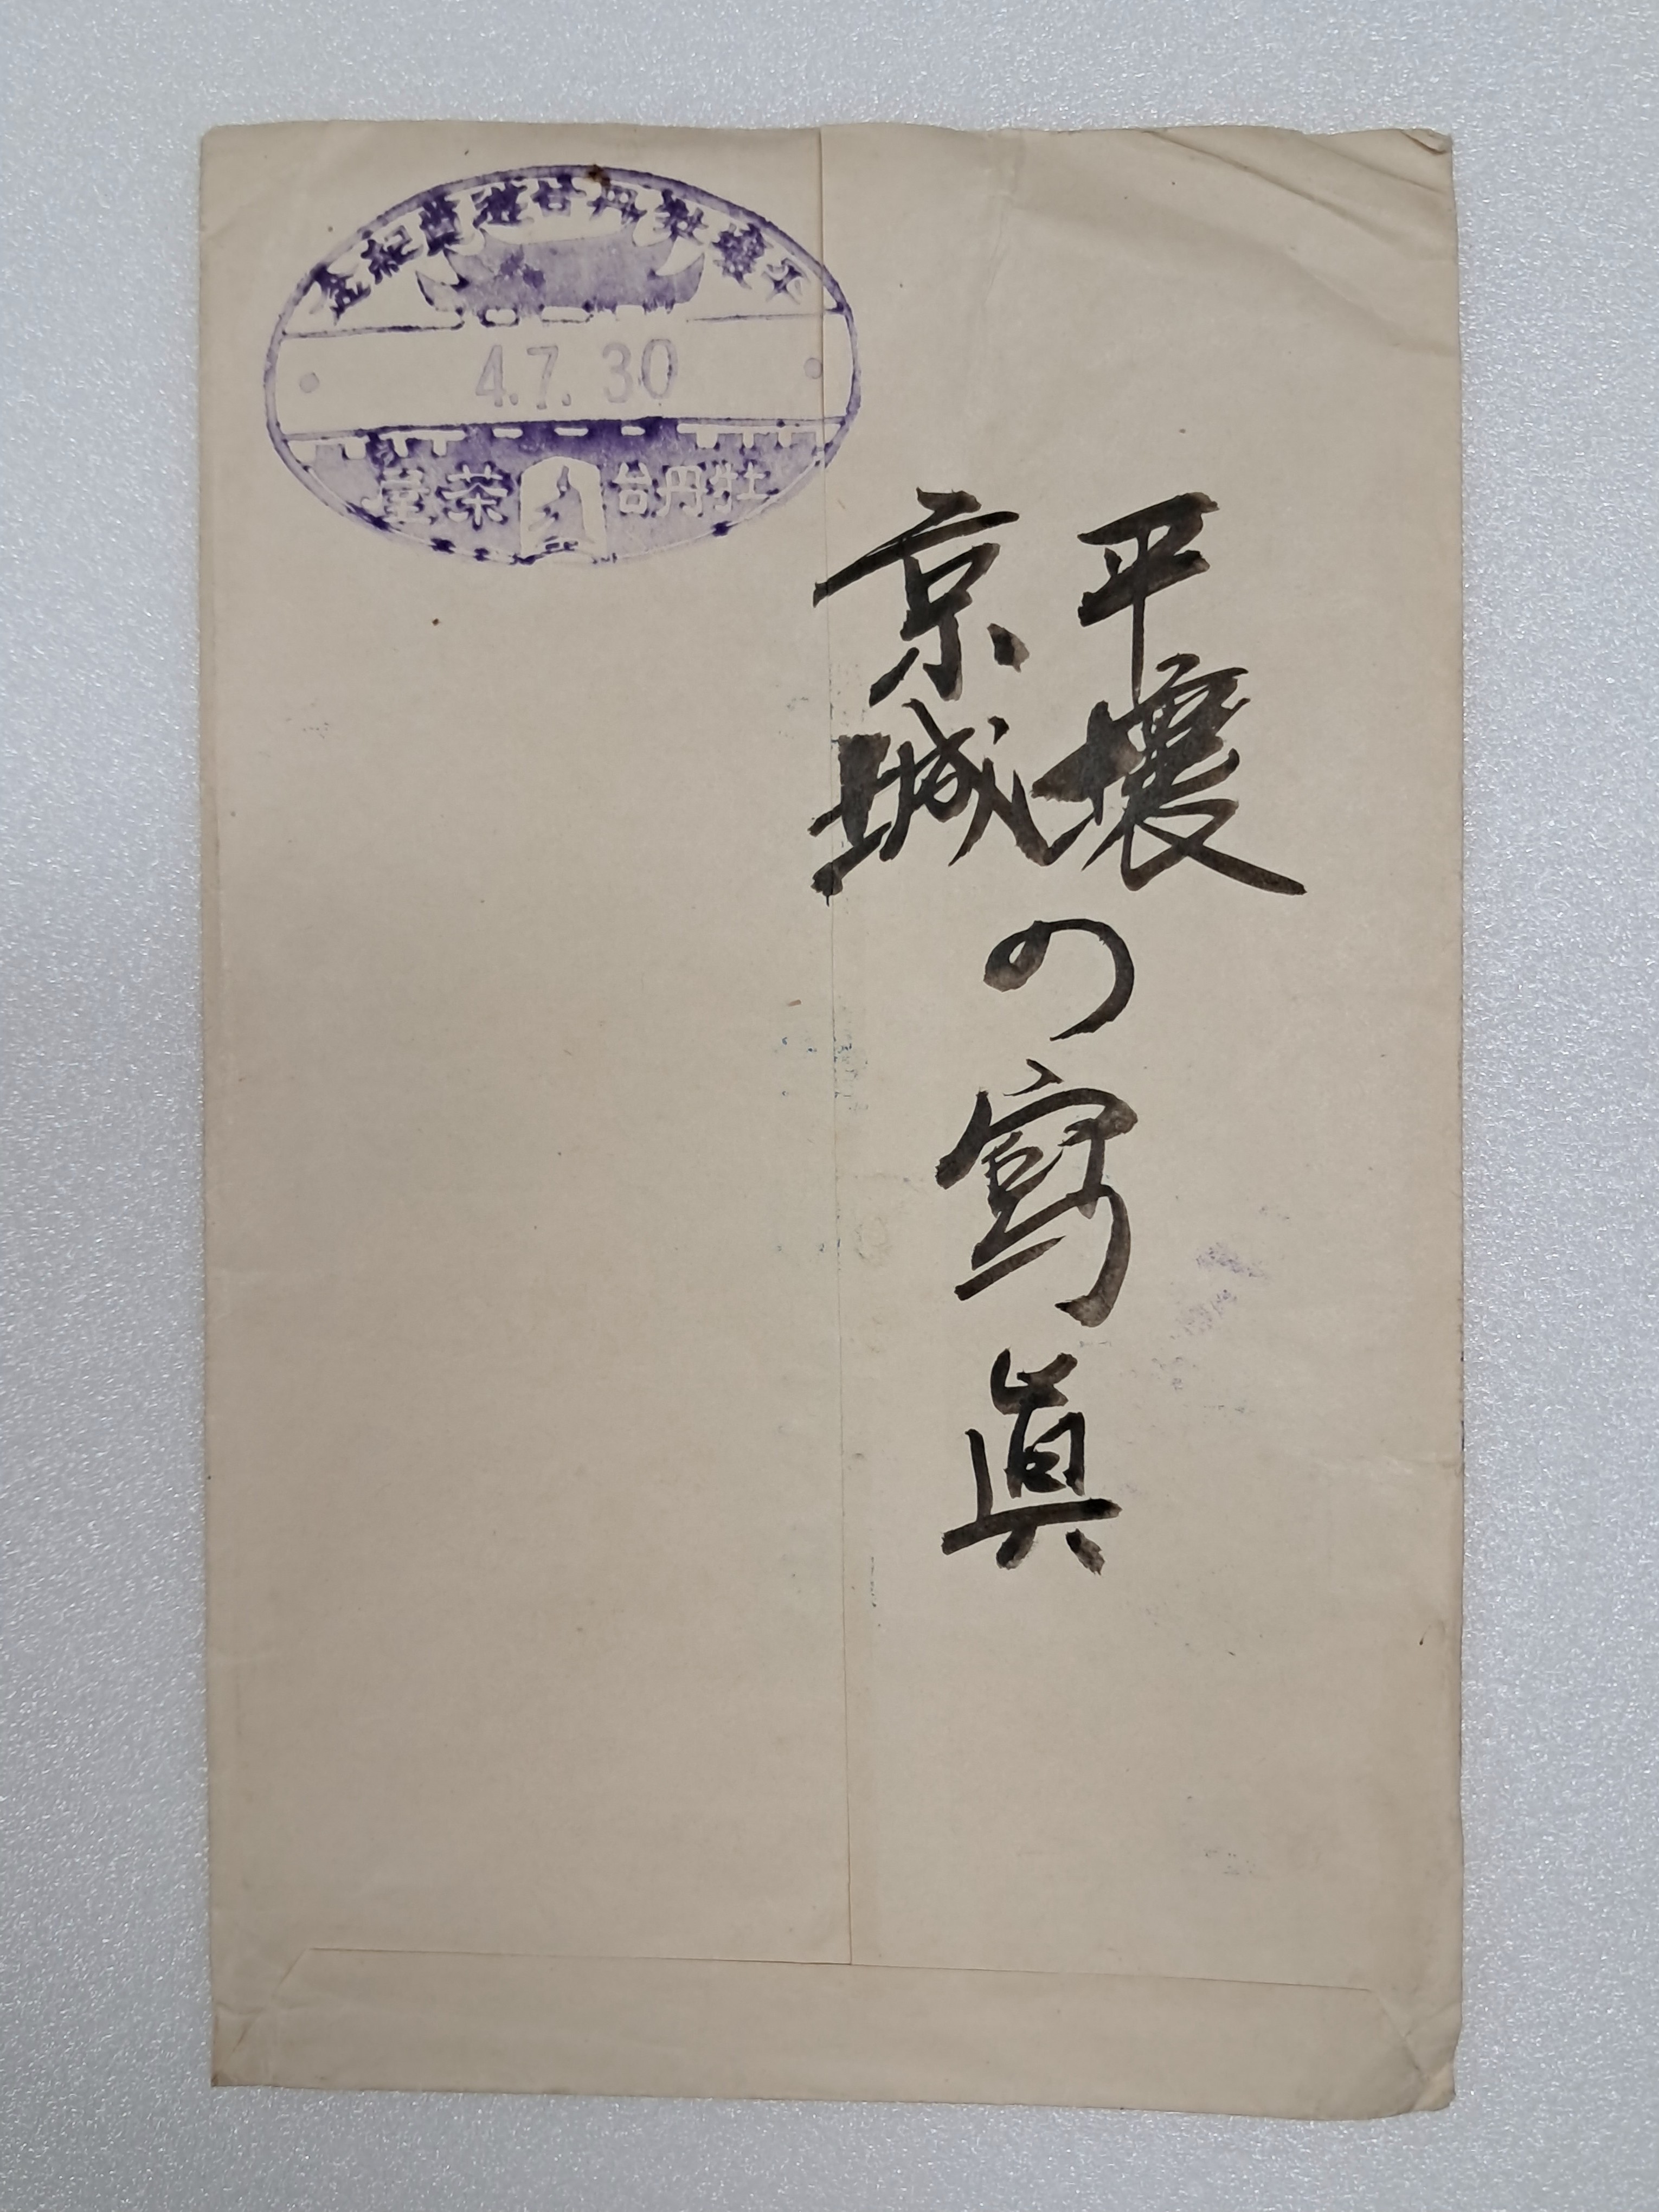 平壤牡丹台遊覽紀念
4.7.30
牡丹台茶屋
平壤
京城
の寫眞